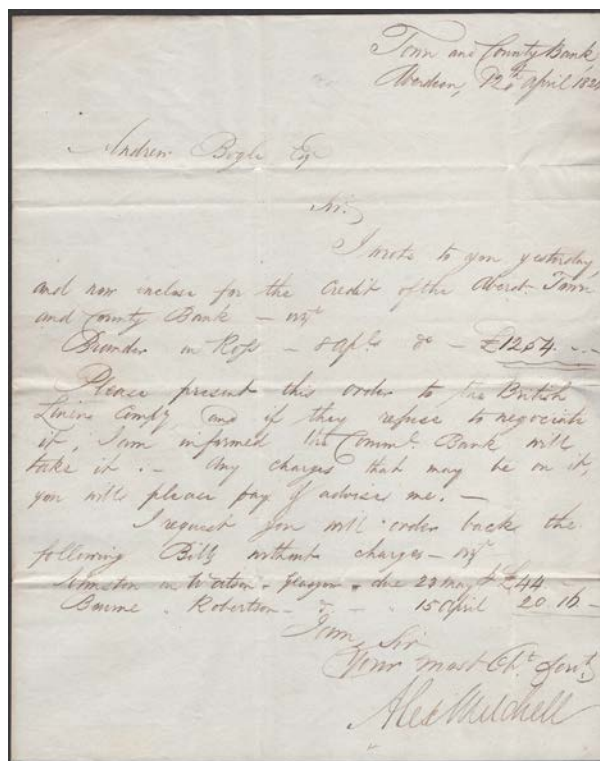 Town and County Bank
Aberdeen, 12th April 182
Andrew Bogle Esqr
Sir,
I wrote to you yesterday,
and now inclose for the Credit of the Aberdn Town
and County Bank — vizt
on Ross — 8 Apl. do — £1254. —
Please present this order to the British
Linen Compy and if they refuse to negociate
it, I am informed the Comml. Bank will
take it. — Any charges that may be on it,
you will please pay & advise me. —
I request you will order back the
following Bills without charges — vizt
Johnston on Watson - Glasgow - due 23 May £44
. Robertson - do - 15 April 20.16. —
I am, Sir
Your most Obt. Servt.
Alex Mitchell